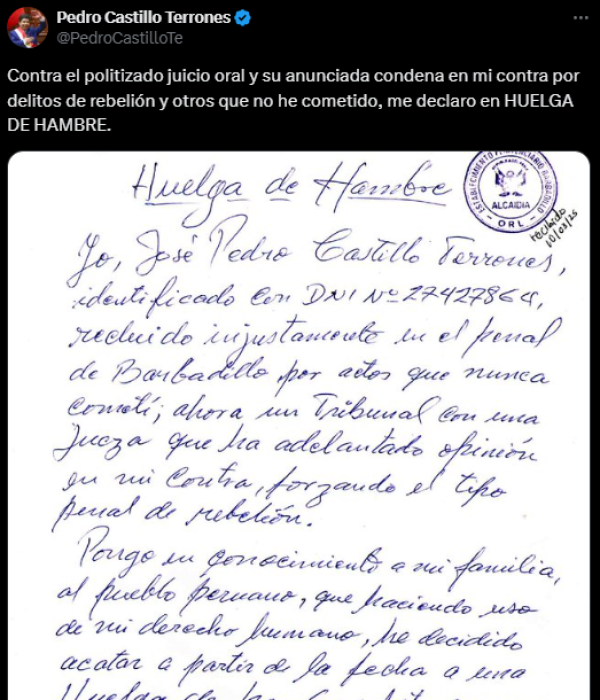 Pedro Castillo Terrones
@PedroCastilloTe
Contra el politizado juicio oral y su anunciada condena en mi contra por
delitos de rebelión y otros que no he cometido, me declaro en HUELGA
DE HAMBRE.
Huelga de Hambre
ESTABLECIMIENTO PENITENCIARIO BARBADILLO
ALCAIDIA
- ORL -
recibido
10/03/25
Yo, José Pedro Castillo Terrones,
identificado con DNI Nº 27427864,
recluido injustamente en el penal
de Barbadillo por actos que nunca
cometí; ahora un Tribunal con una
jueza que ha adelantado opinión
en mi contra, forzando el tipo
penal de rebelión.
Pongo en conocimiento a mi familia,
al pueblo peruano, que haciendo uso
de mi derecho humano, he decidido
acatar a partir de la fecha a una
Huelga de